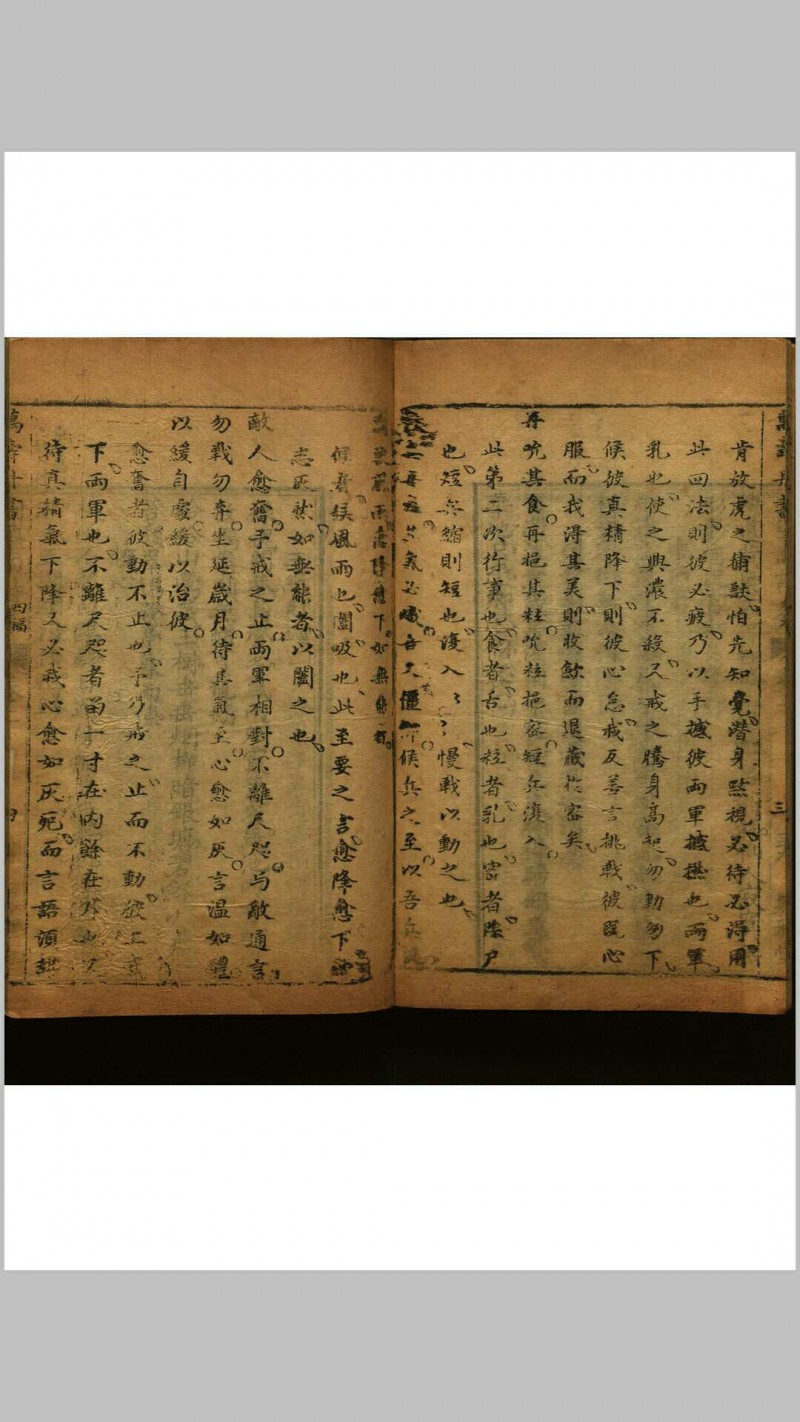 肯放虎之捕鼠怕先知覺潛身默視必待必得用
此四法則彼必疲乃以手撼彼兩軍撼撥也兩軍
乳也使之興濃不殺又戒之騰身高起勿動勿下
候彼真精降下則彼心怠我反善言挑戰彼既心
服而我得其美則收歛而退藏於密矣
再吮其食再挹其粒吮粒挹密短兵復入
此第二次行事也食者舌也粒者乳也密者陰戶
也短兵縮則短也復入慢戰以動之也
候兵之至以吾兵
候者候風雨也闔吸也此至要之言愈降愈下
志灰狀如無能者以闔之也
敵人愈奮予戒之止兩軍相對不離尺咫与敵通言
勿戰勿棄坐延歲月待其氣至心愈如灰言溫如醴
以緩自處緩以治彼
愈奮者彼動不止也予乃戒之止而不動彼上我
下兩軍也不離尺咫者留一寸在內餘在外也以
待真精氣下降又必我心愈如灰死而言語須甜
四
三